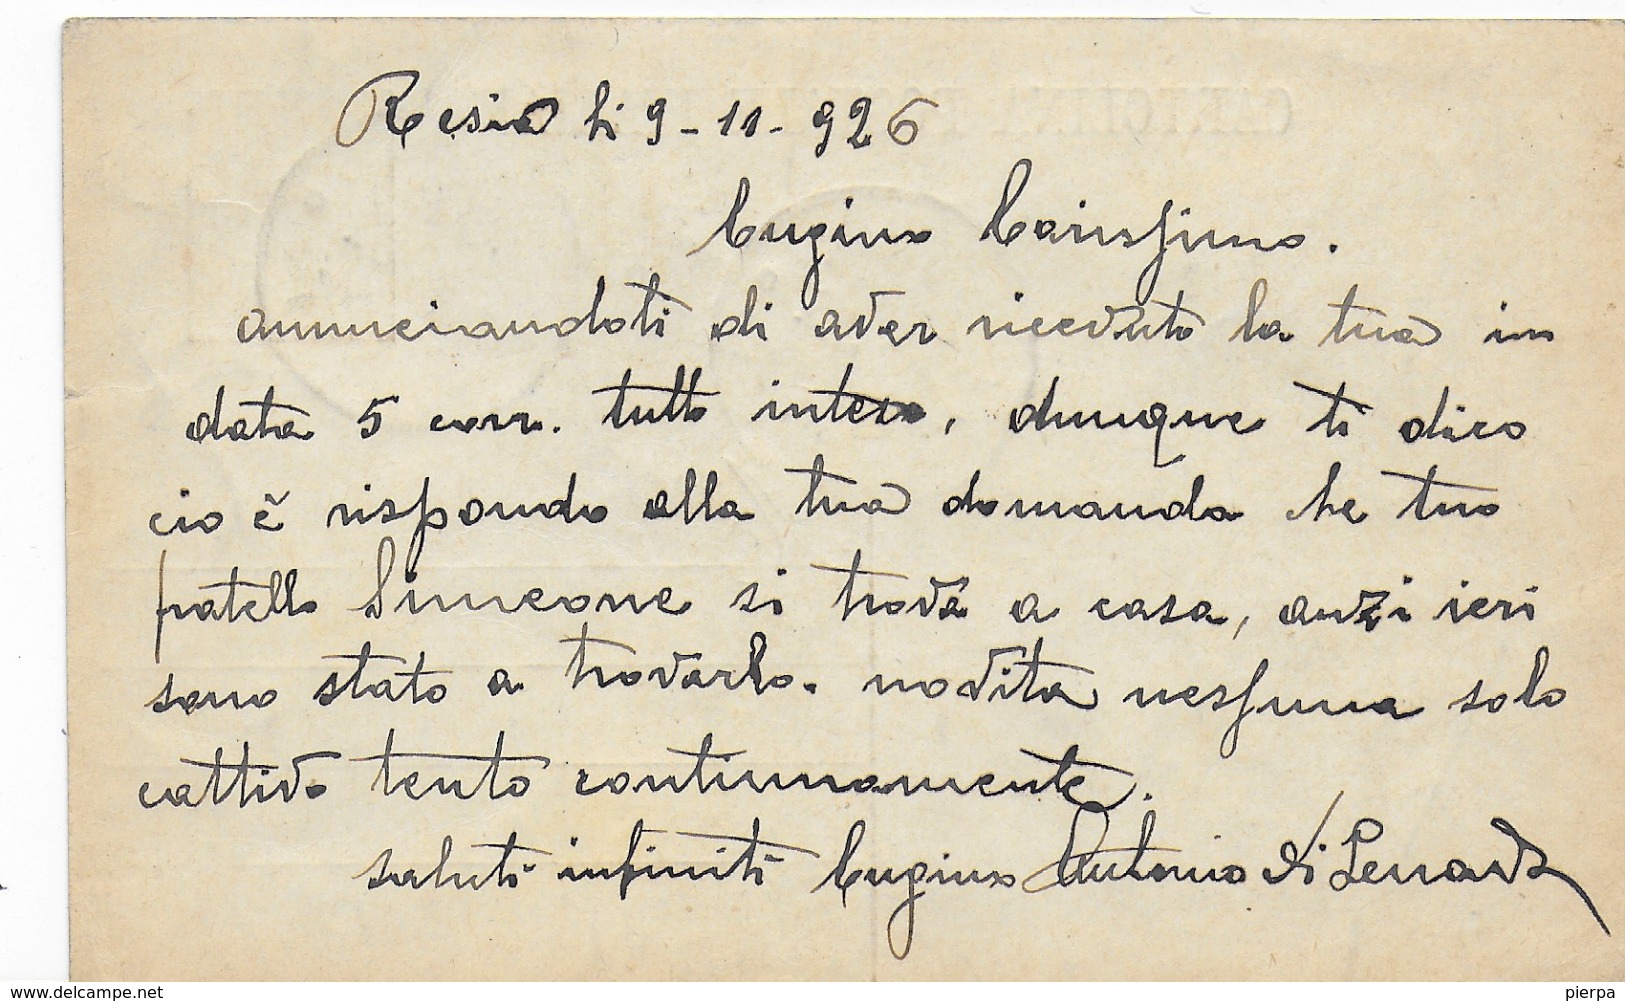 Resia li 9-11-926
Cugino Carissimo.
annunciandoti di aver ricevuto la tua in
data 5 corr. tutto inteso, dunque ti dico
cio è rispondo alla tua domanda che tuo
fratello Simeone si trova a casa, anzi ieri
sono stato a trovarlo. novita nessuna solo
cattivo tento continuamente.
saluti infiniti Cugino Antonio di Lenardo
www.delcampe.net
pierpa